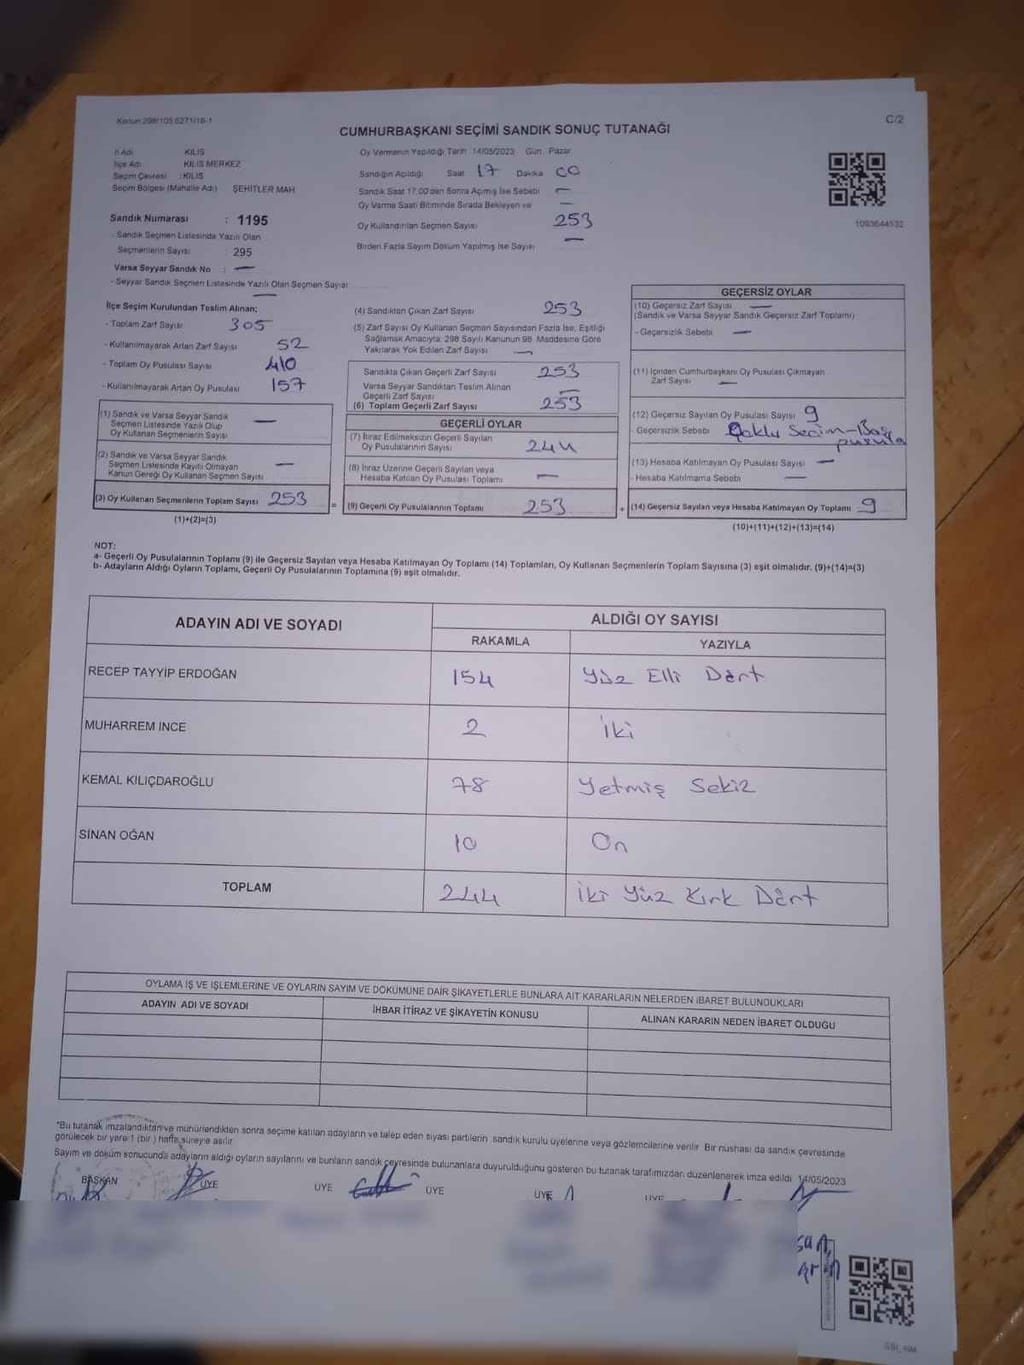 Kanun 298/105 6271/16-1
C/2
CUMHURBAŞKANI SEÇİMİ SANDIK SONUÇ TUTANAĞI
İl Adı KİLİS
İlçe Adı KİLİS MERKEZ
Seçim Çevresi : KİLİS
Seçim Bölgesi (Mahalle Adı) ŞEHİTLER MAH
Sandık Numarası : 1195
- Sandık Seçmen Listesinde Yazılı Olan
Seçmenlerin Sayısı : 295
Varsa Seyyar Sandık No : —
- Seyyar Sandık Seçmen Listesinde Yazılı Olan Seçmen Sayısı
—
Oy Vermenin Yapıldığı Tarih 14/05/2023 Gün Pazar
Sandığın Açıldığı Saat 17 Dakika 00
Sandık Saat 17:00'den Sonra Açılmış İse Sebebi —
Oy Verme Saati Bitiminde Sırada Bekleyen ve —
Oy Kullandırılan Seçmen Sayısı 253
Birden Fazla Sayım Döküm Yapılmış İse Sayısı —
1093644532
İlçe Seçim Kurulundan Teslim Alınan;
- Toplam Zarf Sayısı 305
- Kullanılmayarak Artan Zarf Sayısı 52
- Toplam Oy Pusulası Sayısı 410
- Kullanılmayarak Artan Oy Pusulası 157
(1) Sandık ve Varsa Seyyar Sandık
Seçmen Listesinde Yazılı Olup
Oy Kullanan Seçmenlerin Sayısı —
(2) Sandık ve Varsa Seyyar Sandık
Seçmen Listesinde Kayıtlı Olmayan
Kanun Gereği Oy Kullanan Seçmen Sayısı —
(3) Oy Kullanan Seçmenlerin Toplam Sayısı 253
(1)+(2)=(3)
(4) Sandıktan Çıkan Zarf Sayısı 253
(5) Zarf Sayısı Oy Kullanan Seçmen Sayısından Fazla İse, Eşitliği
Sağlamak Amacıyla, 298 Sayılı Kanunun 98. Maddesine Göre
Yakılarak Yok Edilen Zarf Sayısı —
Sandıkta Çıkan Geçerli Zarf Sayısı 253
Varsa Seyyar Sandıktan Teslim Alınan
Geçerli Zarf Sayısı —
(6) Toplam Geçerli Zarf Sayısı 253
GEÇERLİ OYLAR
(7) İtiraz Edilmeksizin Geçerli Sayılan
Oy Pusulalarının Sayısı 244
(8) İtiraz Üzerine Geçerli Sayılan veya
Hesaba Katılan Oy Pusulası Toplamı —
= (9) Geçerli Oy Pusulalarının Toplamı 253
GEÇERSİZ OYLAR
(10) Geçersiz Zarf Sayısı —
(Sandık ve Varsa Seyyar Sandık Geçersiz Zarf Toplamı)
- Geçersizlik Sebebi —
(11) İçinden Cumhurbaşkanı Oy Pusulası Çıkmayan
Zarf Sayısı —
(12) Geçersiz Sayılan Oy Pusulası Sayısı 9
- Geçersizlik Sebebi Çoklu Seçim-Boş
pusula
(13) Hesaba Katılmayan Oy Pusulası Sayısı —
- Hesaba Katılmama Sebebi —
+ (14) Geçersiz Sayılan veya Hesaba Katılmayan Oy Toplamı 9
(10)+(11)+(12)+(13)=(14)
NOT:
a- Geçerli Oy Pusulalarının Toplamı (9) ile Geçersiz Sayılan veya Hesaba Katılmayan Oy Toplamı (14) Toplamları, Oy Kullanan Seçmenlerin Toplam Sayısına (3) eşit olmalıdır. (9)+(14)=(3)
b- Adayların Aldığı Oyların Toplamı, Geçerli Oy Pusulalarının Toplamına (9) eşit olmalıdır.
ADAYIN ADI VE SOYADI
ALDIĞI OY SAYISI
RAKAMLA YAZIYLA
RECEP TAYYİP ERDOĞAN 154 Yüz Elli Dört
MUHARREM İNCE 2 İki
KEMAL KILIÇDAROĞLU 78 Yetmiş Sekiz
SİNAN OĞAN 10 On
TOPLAM 244 İki Yüz Kırk Dört
OYLAMA İŞ VE İŞLEMLERİNE VE OYLARIN SAYIM VE DÖKÜMÜNE DAİR ŞİKAYETLERLE BUNLARA AİT KARARLARIN NELERDEN İBARET BULUNDUKLARI
ADAYIN ADI VE SOYADI İHBAR İTİRAZ VE ŞİKAYETİN KONUSU ALINAN KARARIN NEDEN İBARET OLDUĞU
*Bu tutanak imzalandıktan ve mühürlendikten sonra seçime katılan adayların ve talep eden siyasi partilerin sandık kurulu üyelerine veya gözlemcilerine verilir. Bir nüshası da sandık çevresinde
görülecek bir yere 1 (bir) hafta süreyle asılır.
Sayım ve döküm sonucunda adayların aldığı oyların sayılarını ve bunların sandık çevresinde bulunanlara duyurulduğunu gösteren bu tutanak tarafımızdan düzenlenerek imza edildi. 14/05/2023
BAŞKAN ÜYE ÜYE ÜYE ÜYE ÜYE